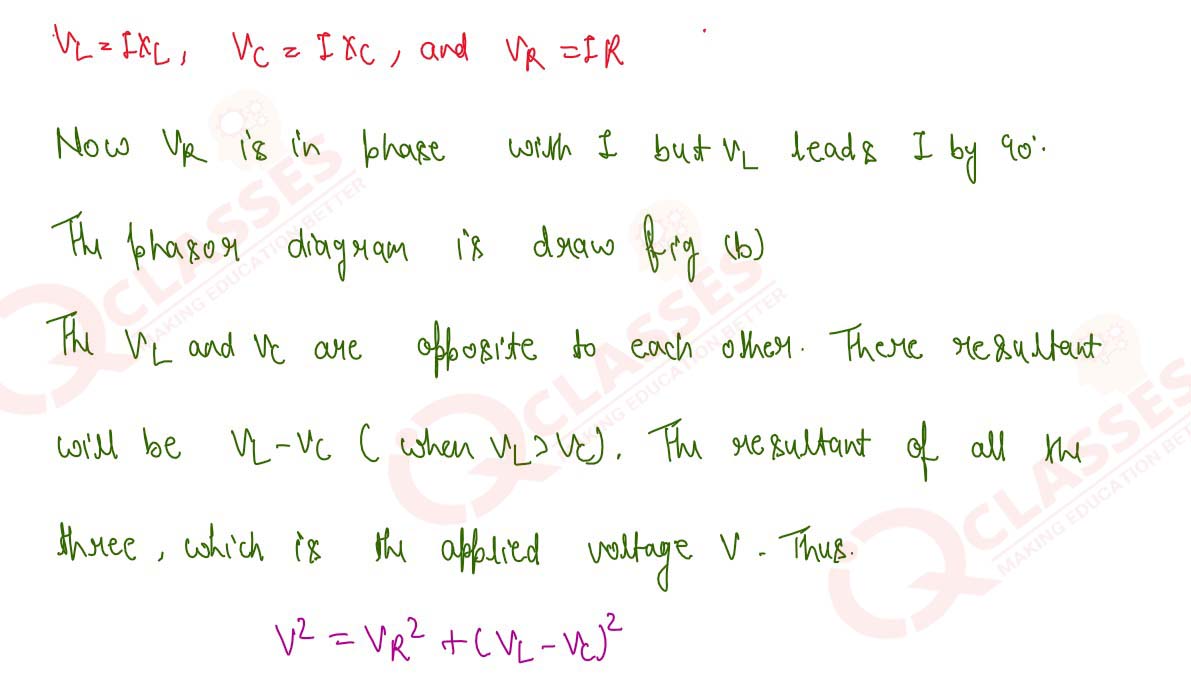 V_L = IX_L, V_C = IX_C, and V_R = IR
Now V_R is in phase with I but V_L leads I by 90°.
The phasor diagram is draw fig (b)
The V_L and V_C are opposite to each other. There resultant
will be V_L - V_C (when V_L > V_C). The resultant of all the
three, which is the applied voltage V. Thus.
V² = V_R² + (V_L - V_C)²
CLASSES
MAKING EDUCATION BETTER
CLASSES
MAKING EDUCATION BETTER
CLASSES
MAKING EDUCATION BE